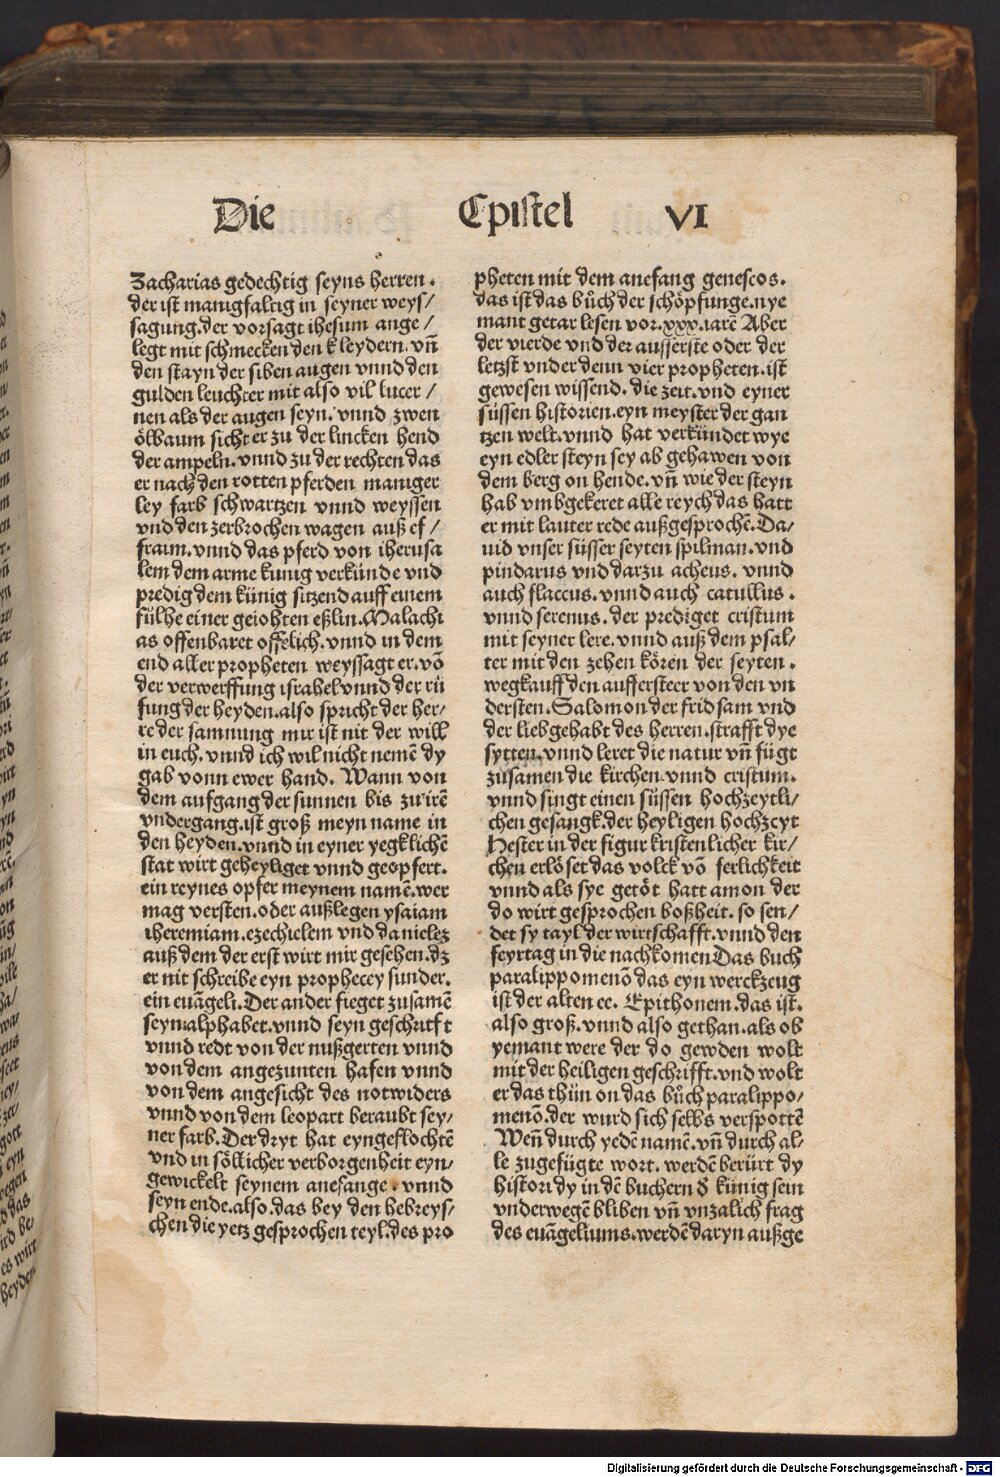 Die Epistel VI
Zacharias gedechtig seyns herren.
der ist manigfaltig in seyner weys/
sagung.der vorsagt ihesum ange/
legt mit schmecken den kleydern.vñ
den stayn der siben augen vnnd den
gulden leuchter mit also vil lucer/
nen als der augen seyn.vnnd zwen
ölbaum sicht er zu der lincken hend
der ampeln.vnnd zu der rechten das
er nach den rotten pferden maniger
ley farb schwartzen vnnd weyssen
vnd den zerbrochen wagen auß ef/
fraim.vnnd das pferd von iherusa
lem dem arme kunig verkünde vnd
predig dem künig sitzend auff einem
fülhe einer geiohten eßlin.Malachi
as offenbaret offelich.vnnd in dem
end aller propheten weyssagt er.vō
der verwerffung israhel vnnd der rü
fung der heyden.also spricht der her/
re der samnung mir ist nit der will
in euch.vnnd ich wil nicht nemē dy
gab vonn ewer hand. Wann von
dem aufgang der sunnen bis zu irē
vndergang.ist groß meyn name in
den heyden.vnnd in eyner yegklichē
stat wirt geheyliget vnnd geopfert.
ein reynes opfer meynem namē.wer
mag versten.oder außlegen ysaiam
iheremiam.ezechielem vnd danielez
auß dem der erst wirt mir gesehen.dz
er nit schreibe eyn prophecey sunder.
ein euāgeli.Der ander fieget zusamē
seyn alphabet.vnnd seyn geschrifft
vnnd redt von der nußgerten vnnd
von dem angezunten hafen vnnd
von dem angesicht des notwiders
vnnd von dem leopart beraubt sey/
ner farb.Der dryt hat eyngeflochtē
vnd in söllicher verborgenheit eyn/
gewickelt seynem anefange.vnnd
seyn ende.also.das bey den hebreys/
chen die yetz gesprochen teyl.des pro
pheten mit dem anefang genescos.
das ist das bůch der schöpfunge.nye
mant getar lesen vor.xxx.iarē Aber
der vierde vnd der ausserste oder der
letzst vnder denn vier propheten.ist
gewesen wissend.die zeit.vnd eyner
süssen historien.eyn meyster der gan
tzen welt.vnnd hat verkündet wye
eyn edler steyn sey ab gehawen von
dem berg on hende.vñ wie der steyn
hab vmbgekeret alle reych das hatt
er mit lauter rede außgesprochē.Da/
uid vnser süsser seyten spilman.vnd
pindarus vnd darzu acheus.vnnd
auch flaccus.vnnd auch catullus.
vnnd serenus.der prediget cristum
mit seyner lere.vnnd auß dem psal/
ter mit den zehen kören der seyten.
wegkauff den auffersteer von den vn
dersten.Salomon der fridsam vnd
der liebgehabt des herren.strafft dye
sytten.vnnd leret die natur vñ fügt
zusamen die kirchen.vnnd cristum.
vnnd singt einen süssen hochzeytli/
chen gesangk.der heyligen hochzeyt
Hester in der figur kristenlicher kir/
chen erlöset das volck vō ferlichkeit
vnnd als sye getöt hatt amon der
do wirt gesprochen boßheit.so sen/
det sy tayl der wirtschafft.vnnd den
feyrtag in die nachkomen Das buch
paralippomenō das eyn werckzeug
ist der alten ee. Epithonem.das ist.
also groß.vnnd also gethan.als ob
yemant were der do gewden wolt
mit der heiligen geschrifft.vnd wolt
er das thün on das bůch paralippo/
menō.der wurd sich selbs verspottē
Weñ durch yedē namē.vñ durch al/
le zugefügte wort.werdē berürt dy
histori dy in dē buchern ð künig sein
vnderwegē bliben vñ vnzalich frag
des euāgeliums.werdē daryn außge
Digitalisierung gefördert durch die Deutsche Forschungsgemeinschaft - DFG